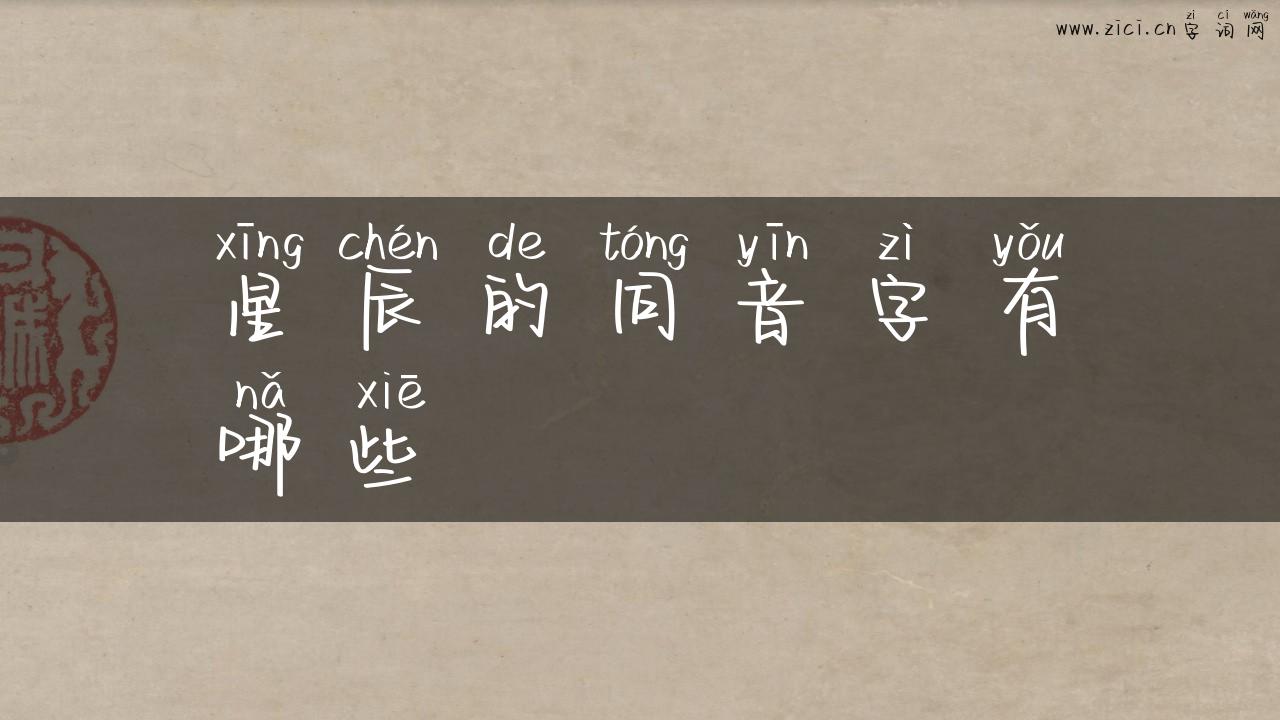 www.zici.cn
zì cí wǎng
字词网
xīng chén de tóng yīn zì yǒu
星辰的同音字有
nǎ xiē
哪些